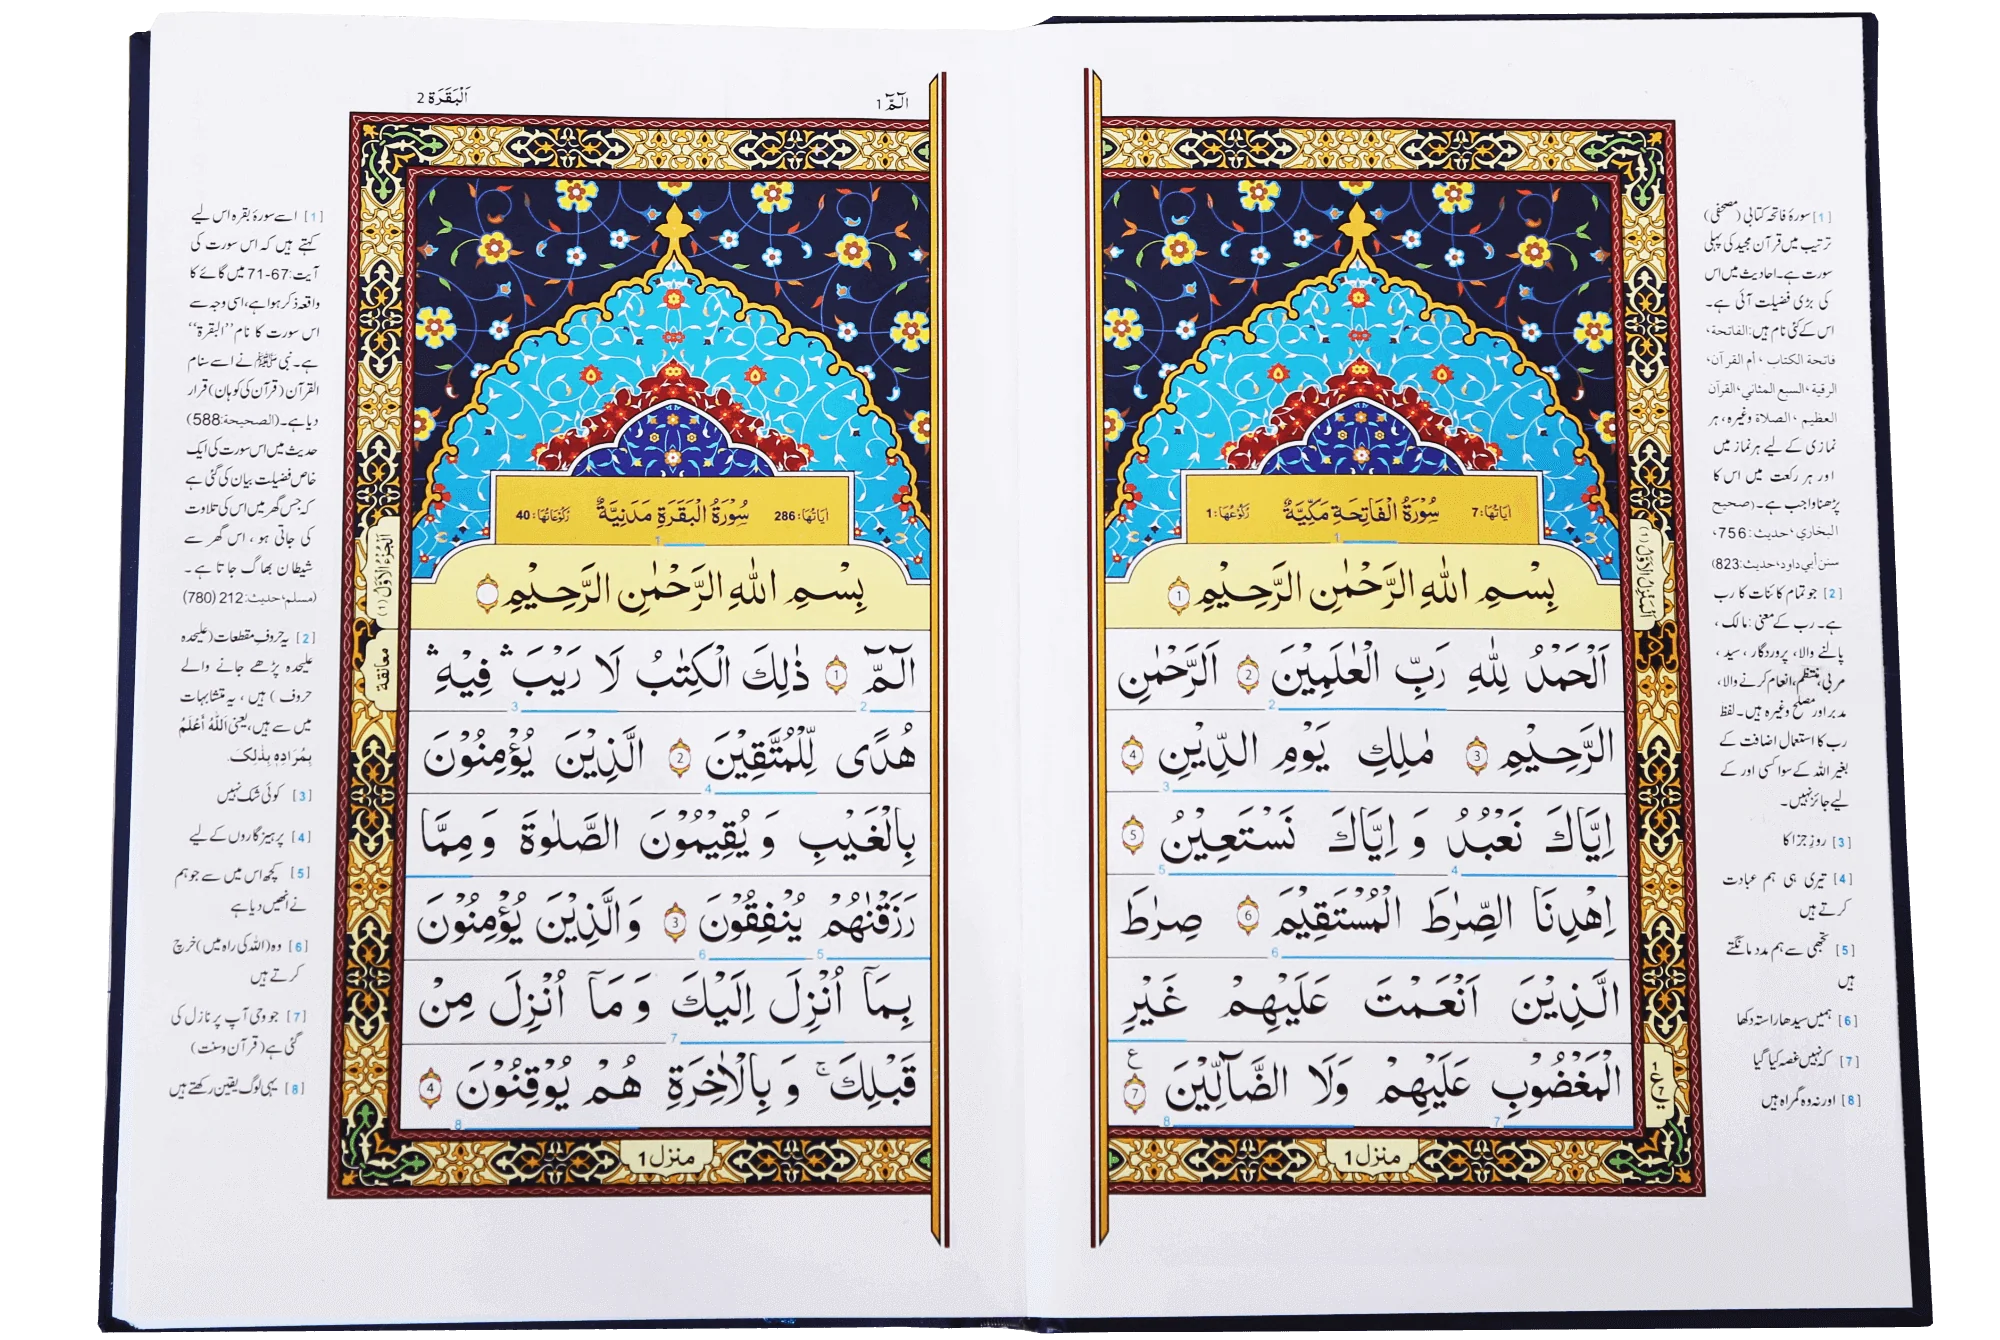 سُوْرَةُ الْفَاتِحَةِ مَكِّيَّةٌ
اٰيَاتُهَا: 7
رُكُوْعُهَا: 1
1
بِسْمِ اللهِ الرَّحْمٰنِ الرَّحِيْمِ 1
اَلْحَمْدُ لِلّٰهِ رَبِّ الْعٰلَمِيْنَ 2 اَلرَّحْمٰنِ
2
الرَّحِيْمِ 3 مٰلِكِ يَوْمِ الدِّيْنِ 4
3
اِيَّاكَ نَعْبُدُ وَ اِيَّاكَ نَسْتَعِيْنُ 5
4 5
اِهْدِنَا الصِّرٰطَ الْمُسْتَقِيْمَ 6 صِرٰطَ
6
الَّذِيْنَ اَنْعَمْتَ عَلَيْهِمْ غَيْرِ
الْمَغْضُوْبِ عَلَيْهِمْ وَلَا الضَّآلِّيْنَ 7 ع
7 8
منزل 1
اَلْمَنْزِلُ الْاَوَّلُ (1)
[1] سورۂ فاتحہ کتابی (مصحفی)
ترتیب میں قرآن مجید کی پہلی
سورت ہے۔ احادیث میں اس
کی بڑی فضیلت آئی ہے۔
اس کے کئی نام ہیں: الفاتحة،
فاتحة الكتاب، أم القرآن،
الرقية، السبع المثاني، القرآن
العظيم، الصلاة وغیرہ، ہر
نمازی کے لیے ہر نماز میں
اور ہر رکعت میں اس کا
پڑھنا واجب ہے۔ (صحيح
البخاري، حديث: 756،
سنن أبي داود، حديث: 823)
[2] جو تمام کائنات کا رب
ہے۔ رب کے معنی: مالک،
پالنے والا، پروردگار، سید،
مربی، منتظم، انعام کرنے والا،
مدبر اور مصلح وغیرہ ہیں۔ لفظ
رب کا استعمال اضافت کے
بغیر اللہ کے سوا کسی اور کے
لیے جائز نہیں۔
[3] روز جزا کا
[4] تیری ہی ہم عبادت
کرتے ہیں
[5] تجھی سے ہم مدد مانگتے
ہیں
[6] ہمیں سیدھا راستہ دکھا
[7] کہ نہیں غصہ کیا گیا
[8] اور نہ وہ گمراہ ہیں
الٓمّٓ 1
اَلْبَقَرَة 2
سُوْرَةُ الْبَقَرَةِ مَدَنِيَّةٌ
اٰيَاتُهَا: 286
رُكُوْعَاتُهَا: 40
1
بِسْمِ اللهِ الرَّحْمٰنِ الرَّحِيْمِ
الٓمّٓ 1 ذٰلِكَ الْكِتٰبُ لَا رَيْبَ ۛ فِيْهِ ۛ
2 3
هُدًى لِّلْمُتَّقِيْنَ 2 الَّذِيْنَ يُؤْمِنُوْنَ
4
بِالْغَيْبِ وَ يُقِيْمُوْنَ الصَّلٰوةَ وَ مِمَّا
رَزَقْنٰهُمْ يُنْفِقُوْنَ 3 وَ الَّذِيْنَ يُؤْمِنُوْنَ
5 6
بِمَآ اُنْزِلَ اِلَيْكَ وَ مَآ اُنْزِلَ مِنْ
7
قَبْلِكَ ۚ وَ بِالْاٰخِرَةِ هُمْ يُوْقِنُوْنَ 4
8
منزل 1
اَلْجُزْءُ الْاَوَّلُ (1)
معانقة
[1] اسے سورۂ بقرہ اس لیے
کہتے ہیں کہ اس سورت کی
آیت: 67-71 میں گائے کا
واقعہ ذکر ہوا ہے، اسی وجہ سے
اس سورت کا نام ’’البقرة‘‘
ہے۔ نبی ﷺ نے اسے سنام
القرآن (قرآن کی کوہان) قرار
دیا ہے۔ (الصحيحة: 588)
حدیث میں اس سورت کی ایک
خاص فضیلت بیان کی گئی ہے
کہ جس گھر میں اس کی تلاوت
کی جاتی ہو، اس گھر سے
شیطان بھاگ جاتا ہے۔
(مسلم، حديث: 212 (780)
[2] یہ حروف مقطعات (علیحدہ
علیحدہ پڑھے جانے والے
حروف) ہیں، یہ متشابہات
میں سے ہیں، یعنی اَللهُ أَعْلَمُ
بِمُرَادِهِ بِذٰلِكَ.
[3] کوئی شک نہیں
[4] پرہیزگاروں کے لیے
[5] کچھ اس میں سے جو ہم
نے انھیں دیا ہے
[6] وہ (اللہ کی راہ میں) خرچ
کرتے ہیں
[7] جو وحی آپ پر نازل کی
گئی ہے (قرآن وسنت)
[8] یہی لوگ یقین رکھتے ہیں